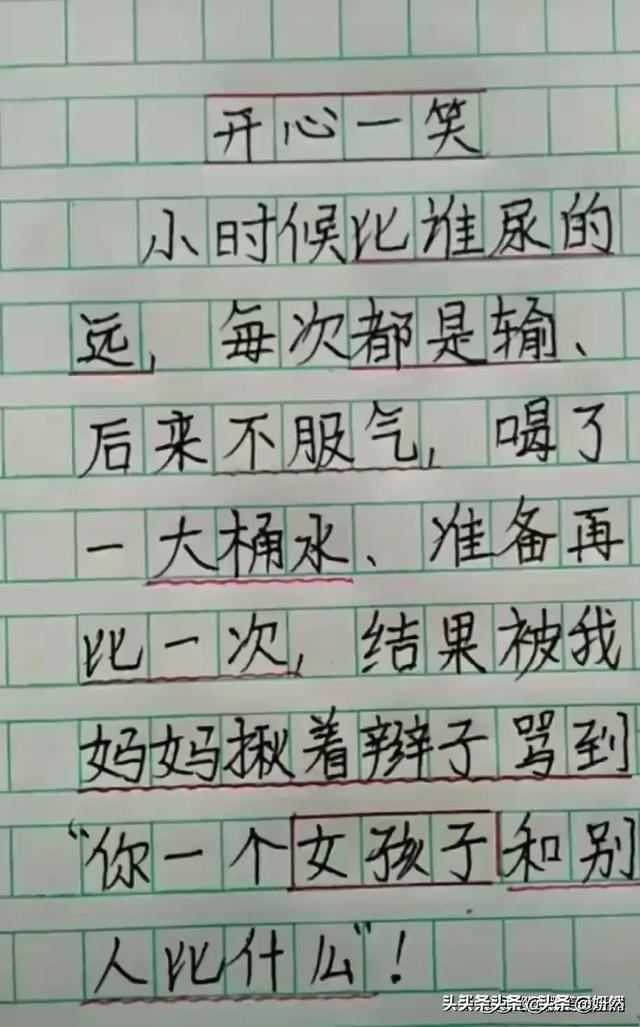 开心一笑
小时候比谁尿的
远，每次都是输、
后来不服气，喝了
一大桶水、准备再
比一次，结果被我
妈妈揪着辫子骂到
“你一个女孩子和别
人比什么”！
头条 @妍然